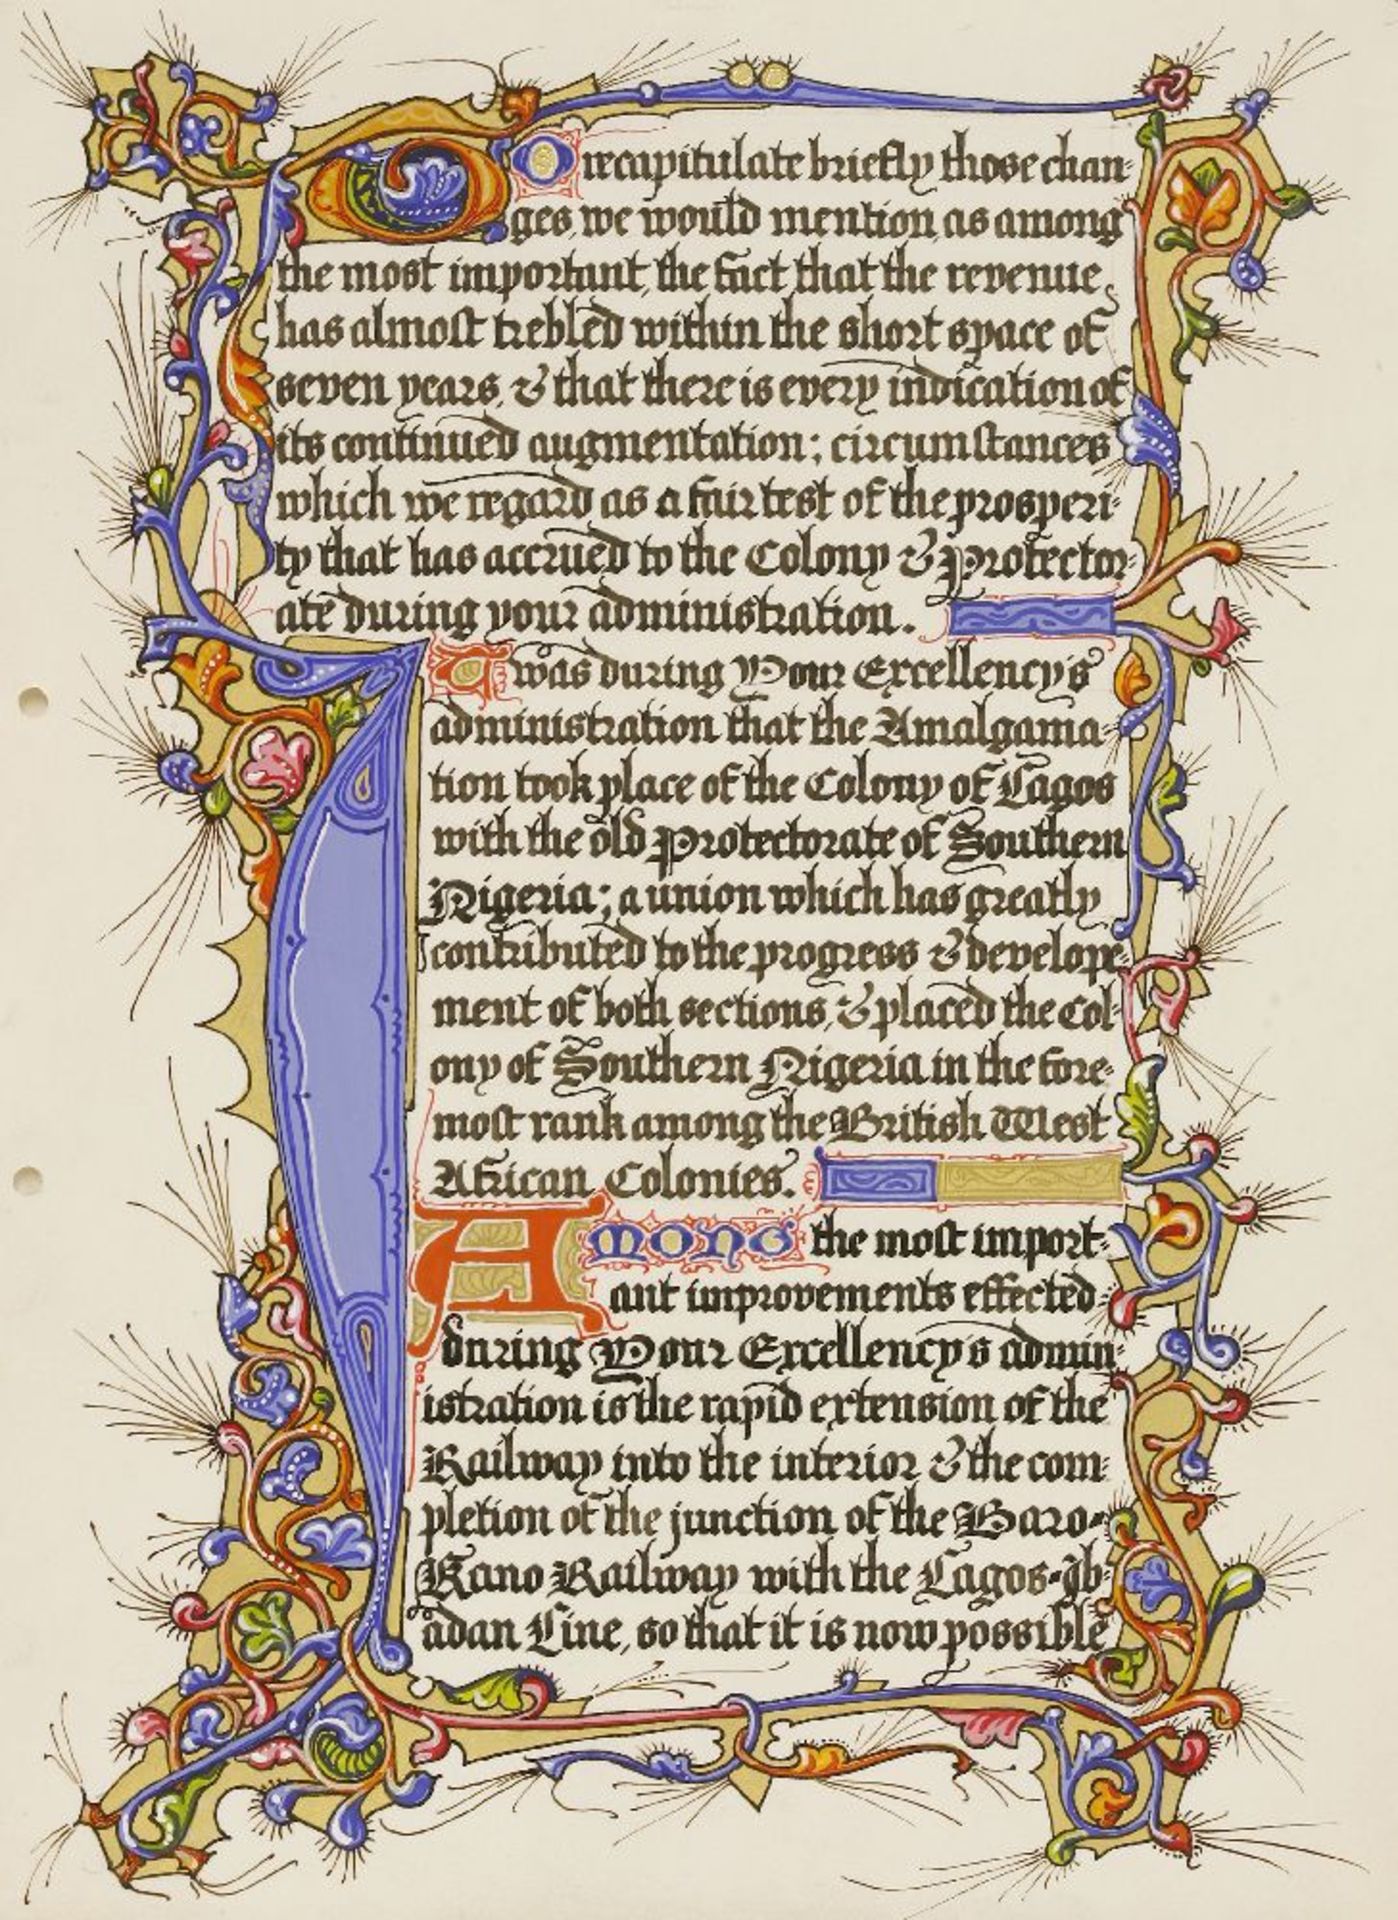 TO recapitulate briefly those chan-
ges, we would mention, as among
the most important, the fact that the revenue
has almost trebled within the short space of
seven years, & that there is every indication of
its continued augmentation; circumstances
which we regard as a fair test of the prosperi-
ty that has accrued to the Colony & Protector-
ate during your administration.
IT was during Your Excellency's
administration that the Amalgama-
tion took place of the Colony of Lagos
with the old Protectorate of Southern
Nigeria; a union which has greatly
contributed to the progress & develope-
ment of both sections, & placed the Col-
ony of Southern Nigeria in the fore-
most rank among the British West
African Colonies.
AMONG the most import-
ant improvements effected
during Your Excellency's admin-
istration is the rapid extension of the
Railway into the interior & the com-
pletion of the junction of the Baro-
Kano Railway with the Lagos-Ib-
adan Line, so that it is now possible